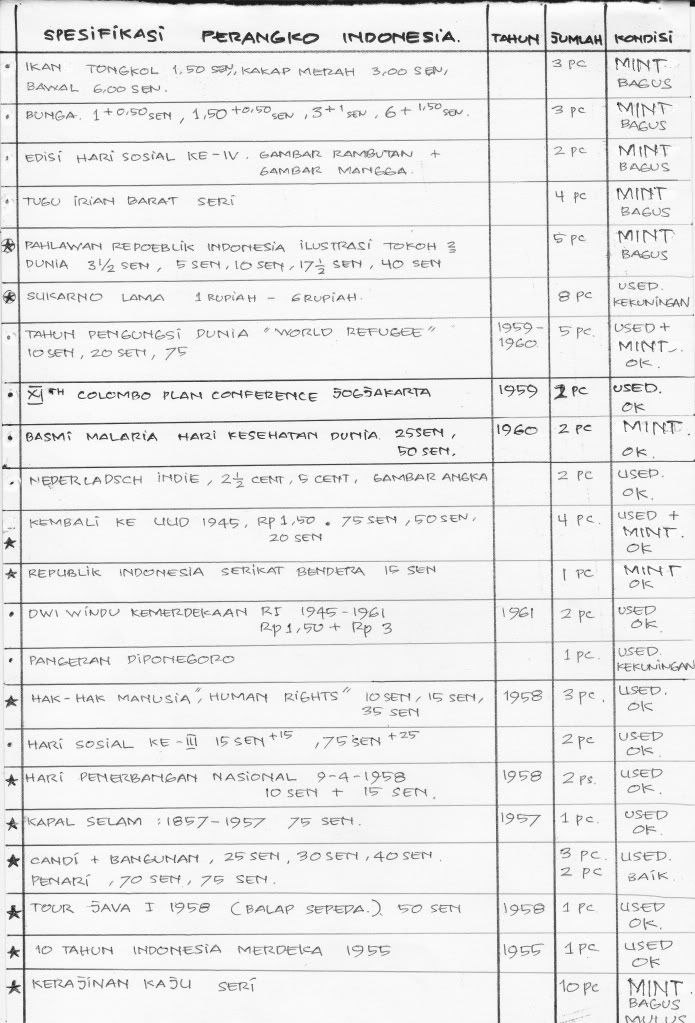 SPESIFIKASI PERANGKO INDONESIA. TAHUN JUMLAH KONDISI
• IKAN TONGKOL 1,50 SEN, KAKAP MERAH 3,00 SEN, 3 PC MINT
BAWAL 6,00 SEN. BAGUS
• BUNGA. 1+0,50 SEN, 1,50+0,50 SEN, 3+1 SEN, 6+1,50 SEN. 3 PC MINT
BAGUS
• EDISI HARI SOSIAL KE-IV. GAMBAR RAMBUTAN + 2 PC MINT
GAMBAR MANGGA. BAGUS
• TUGU IRIAN BARAT SERI 4 PC MINT
BAGUS
★ PAHLAWAN REPOEBLIK INDONESIA ILUSTRASI TOKOH 2 5 PC MINT
DUNIA 3 1/2 SEN, 5 SEN, 10 SEN, 17 1/2 SEN, 40 SEN BAGUS
★ SUKARNO LAMA 1 RUPIAH - 6 RUPIAH. 8 PC USED.
KEKUNINGAN
• TAHUN PENGUNGSI DUNIA "WORLD REFUGEE" 1959- 5 PC. USED +
10 SEN, 20 SEN, 75 1960 MINT.
OK.
• XI TH COLOMBO PLAN CONFERENCE JOGJAKARTA 1959 2 PC USED.
OK
• BASMI MALARIA HARI KESEHATAN DUNIA. 25 SEN, 1960 2 PC MINT.
50 SEN. OK.
• NEDERLADSCH INDIE, 2 1/2 CENT, 5 CENT, GAMBAR ANGKA 2 PC USED.
OK.
★ KEMBALI KE UUD 1945, RP 1,50. 75 SEN, 50 SEN, 4 PC. USED +
20 SEN MINT.
OK
★ REPUBLIK INDONESIA SERIKAT BENDERA 15 SEN 1 PC MINT
OK
• DWI WINDU KEMERDEKAAN RI 1945-1961 1961 2 PC USED
Rp 1,50 + Rp 3 OK.
• PANGERAN DIPONEGORO 1 PC. USED.
KEKUNINGAN
★ HAK-HAK MANUSIA", HUMAN RIGHTS" 10 SEN, 15 SEN, 1958 3 PC. USED.
35 SEN OK
• HARI SOSIAL KE-III 15 SEN +15, 75 SEN +25 2 PC USED
OK.
★ HARI PENERBANGAN NASIONAL 9-4-1958 1958 2 PS. USED
10 SEN + 15 SEN. OK.
★ KAPAL SELAM : 1857-1957 75 SEN. 1957 1 PC. USED
OK.
★ CANDI + BANGUNAN, 25 SEN, 30 SEN, 40 SEN. 3 PC. USED.
PENARI, 70 SEN, 75 SEN. 2 PC BAIK.
★ TOUR JAVA I 1958 (BALAP SEPEDA.) 50 SEN 1958 1 PC USED
OK.
★ 10 TAHUN INDONESIA MERDEKA 1955 1955 1 PC USED
OK
★ KERAJINAN KAJU SERI 10 PC MINT.
BAGUS
MULUS